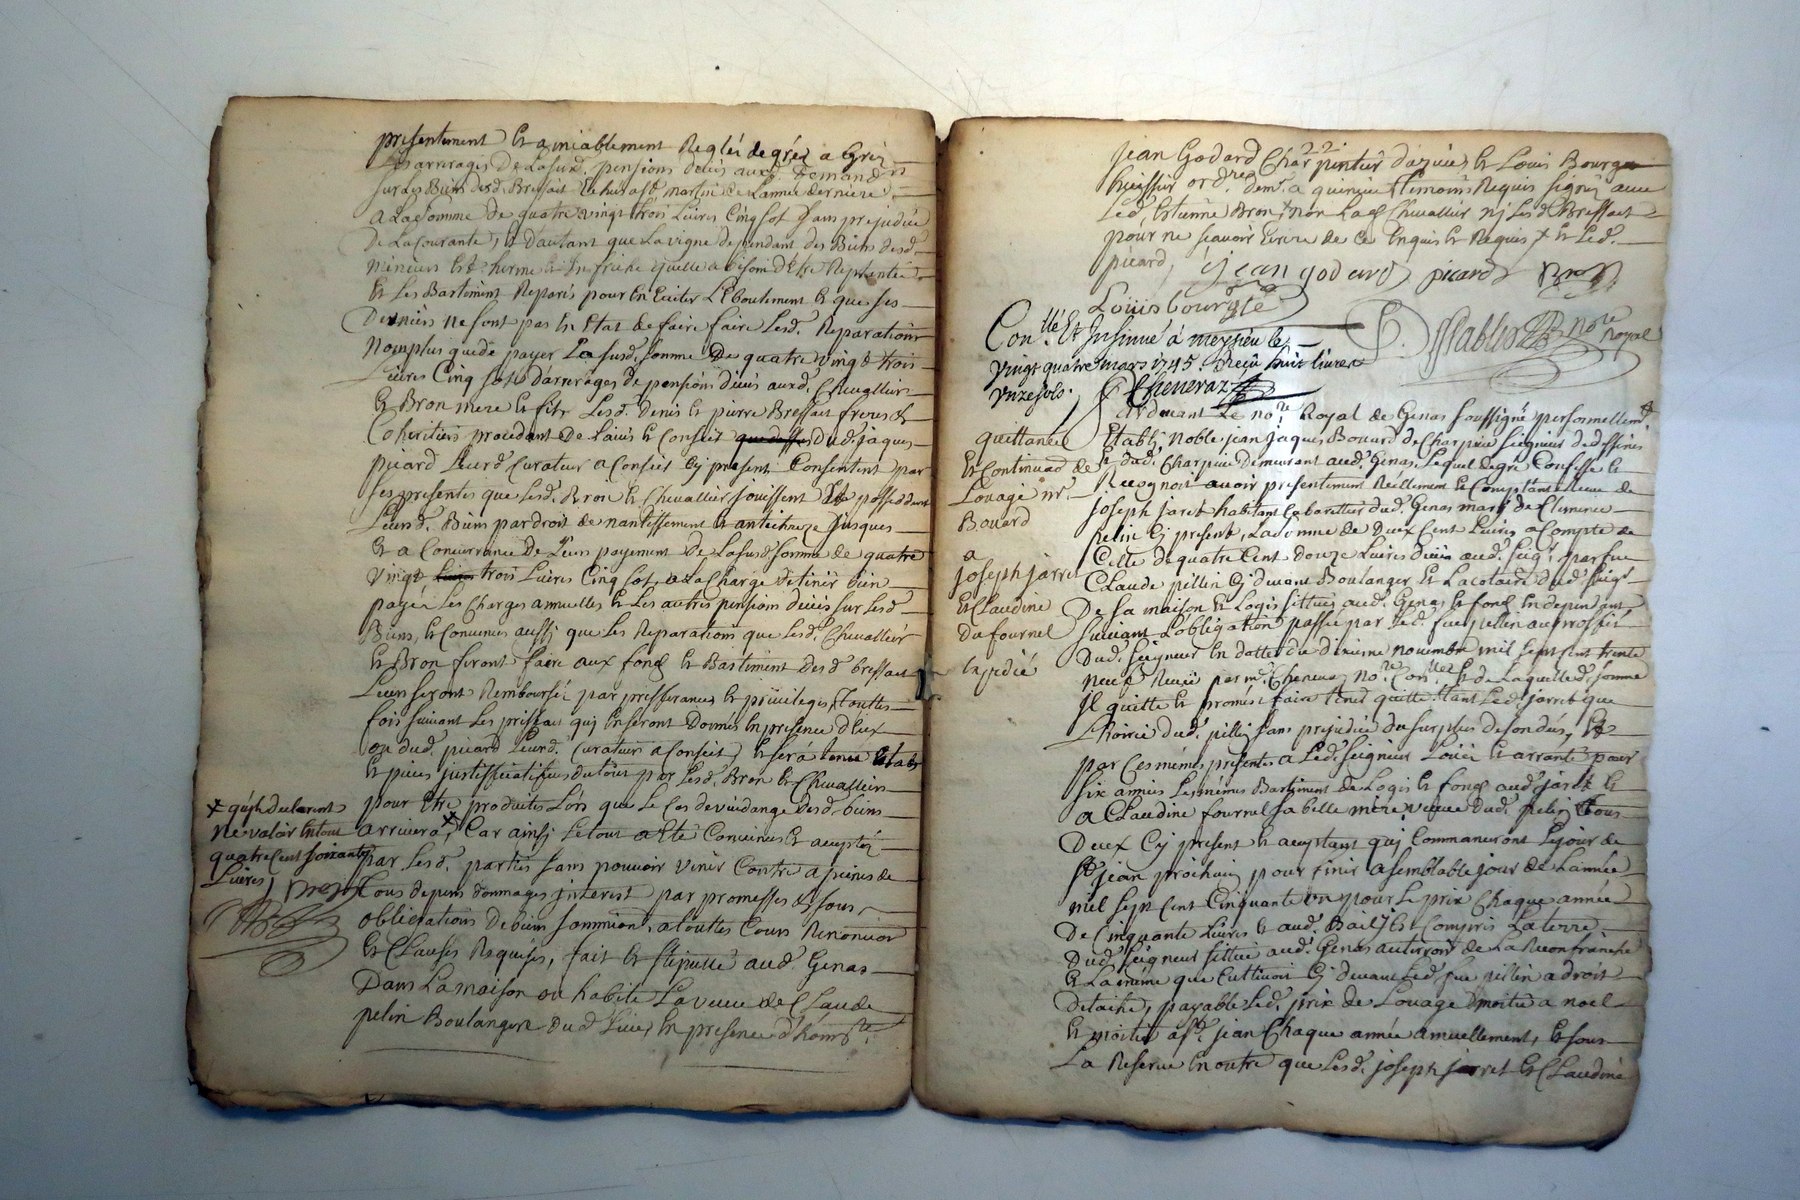 presentement et amiablement Reglés de gréz a gréz
les arrerages de la susd. pensions deües auxd. demand.rs
sur les Biens desd. Bressait
a la somme de quatre vingt trois Livres Cinq sol sans prejudice
de La Courante, et d'autant que La vigne dependant des Biens desd.
mineurs est herme et En friche quelle a besoin d'Etre Replantée
Et Les Bastiment Reparés pour En Eviter L'Eboulement et que ses
Derniers ne sont pas En Etat de faire faire Lesd. Reparations
Nomplus que de payer La susd. somme De quatre vingt trois
Livres Cinq sols d'arrerages de pensions deües auxd. Chevallier
Et Bron mere et fils Lesd. Denis et pierre Bressait freres et
Coheritiers procedant De L'avis et Conseil que dessus dud. jaques
picard Leurd. Curateur a Conseil Cy present Consentent par
ses presentes que Lesd. Bron et Chevallier jouissent et possedent
Leursd. Biens par droit de nantissement et antichreze jusques
Et a Concurrance de Leur payement de La susd. somme de quatre
vingt Livres trois Livres Cinq sol, a la Charge de tenir bien
payée Les Charges annuelles et Les autres pensions deües sur Lesd.
Biens, et Convenus aussy que Les Reparations que Lesd. Chevallier
Et Bron feront faire aux fonds et Bastiment desd. bressait
Leurs seront Remboursés par prefferance et privileges, Touttes
fois suivant Les prisfait quy En seront Donnés En presence d'Eux
ou dud. picard Leurd. Curateur a Conseil, et sera tenu Etat
Et pieces justifficatifves du tout par Lesd. Bron et Chevallier
pour Etre produites Lors que Le Cas de vuidange desd. biens
arrivera, x Car ainsy Le tout a Eté Convenus et accepté
par Lesd. parties sans pouvoir venir Contre a peines de
Tous depens dommages interest par promesses et sous
obligations de biens sommions a touttes Cours Renonciation
Et Clauses Requises, fait et stipullé aud. Genas
Dans La maison ou habite La veuve de Claude
pelin Boulanger Dud. Lieu, En presence d'honn.te
x qu'ils declarent
ne valoir En tout
quatre Cent soixante
Livres,
jean Godard Charpentier d'azieu, et Louis Bourge
huissier ord.re dem.t a quinzieu Temoins Requis signés avec
Led. Estienne Bron, non Lad. Chevallier ny Lesd. Bressait
pour ne sçavoir Ecrire de ce Enquis et Requis x et Led.
picard,
jean godard picard Bron
Louis bourgte
Con.llé Et Insinué à meysieu le
vingt quatre mars 1745. Reçu huit livres
unze sols.
Cheneraz
no.re Royal
Par devant Le no.re Royal de Genas soussigné personnellem.t
Etably noble jean jaques Bouard De Charpieu seigneur de dessines
Et dud. Charpieu Demeurant aud. Genas, Lequel de gré Confesse et
Recognoit avoir presentement Reellement et Comptant Receu de
joseph jaret habitant Cabarettier dud. Genas mary de Clemence
pelin Cy present, La somme de Deux Cent Livres a Compte de
Celle de quatre Cent douze Livres deües aud. seig.r par feu
Claude pillin Cy devant Boulanger Et Locataire dud. seig.r
De sa maison et Logis sittués aud. Genas et fonds En dependant
suivant L'obligation passée par Led. feu pellin au proffit
Dud. seigneur En datte du dixieme novembre mil sept cent trente
neuf Receüe par m.e Cheneraz no.re Et de Laquelle d. somme
Il quitte et promés faire tenir quitte tant Led. jarret que
L'hoirie dud. pillin sans prejudice du surplus de son dû, Et
par Ces mémes presentes a Led. seigneur Loüé et arranté pour
six années Les mémes Bastiment de Logis et fonds aud. jaret et
a Claudine fournel sa belle mere veuve dud. pelin Tous
Deux Cy present et acceptant quy Commanceront Le jour de
S.t jean prochain pour finir a semblable jour de L'année
mil sept Cent Cinquante un pour Le prix Chaque année
De Cinquante Livres et aud. Bail y Est Compris La terre
Dud. seigneur sittuée aud. Genas au terroir de La Rien franche
Et La méme que Cultivoit Cy devant Led. feu pillin a droit
detaché, payable Led. prix de Louage moitié a noel
Et moitié a S.t jean Chaque année annuellement, Et sous
La Reserve En outre que Lesd. joseph jarret Et Claudine
quittance
Et Continuaõ de
Louage m.r
Bouard
a
joseph jarret
Et Claudine
Du fournel
Expedié